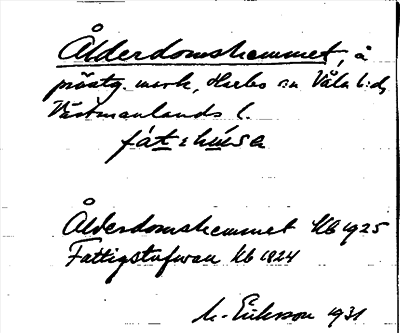 Ålderdomshemmet, å
prästg. mark, Harbo sn Våla hd,
Västmanlands l.
Ålderdomshemmet Kb 1925
Fattigstufwan Kb 1824
M. Eriksson 1931